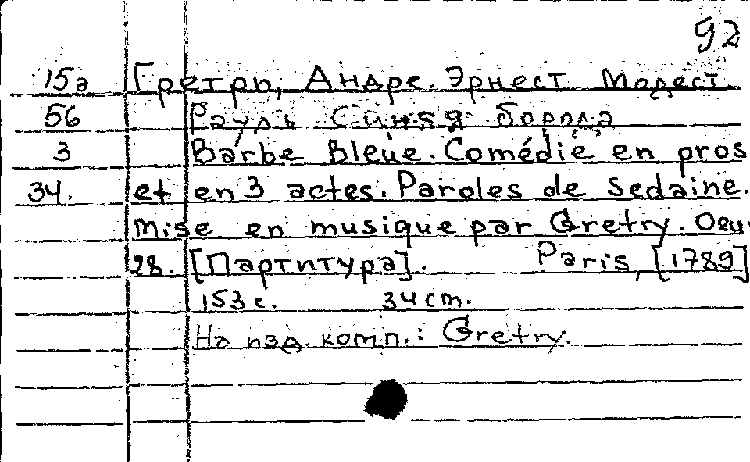 92
15а Гретри, Андре. Эрнест Модест.
56 Рауль Синяя борода
3 Barbe Bleue. Comédie en pros
34. et en 3 actes. Paroles de Sedaine.
mise en musique par Gretry. Oeu.
28. [Партитура]. Paris, [1789]
153 с. 34 cm.
На изд. комп.: Gretry.